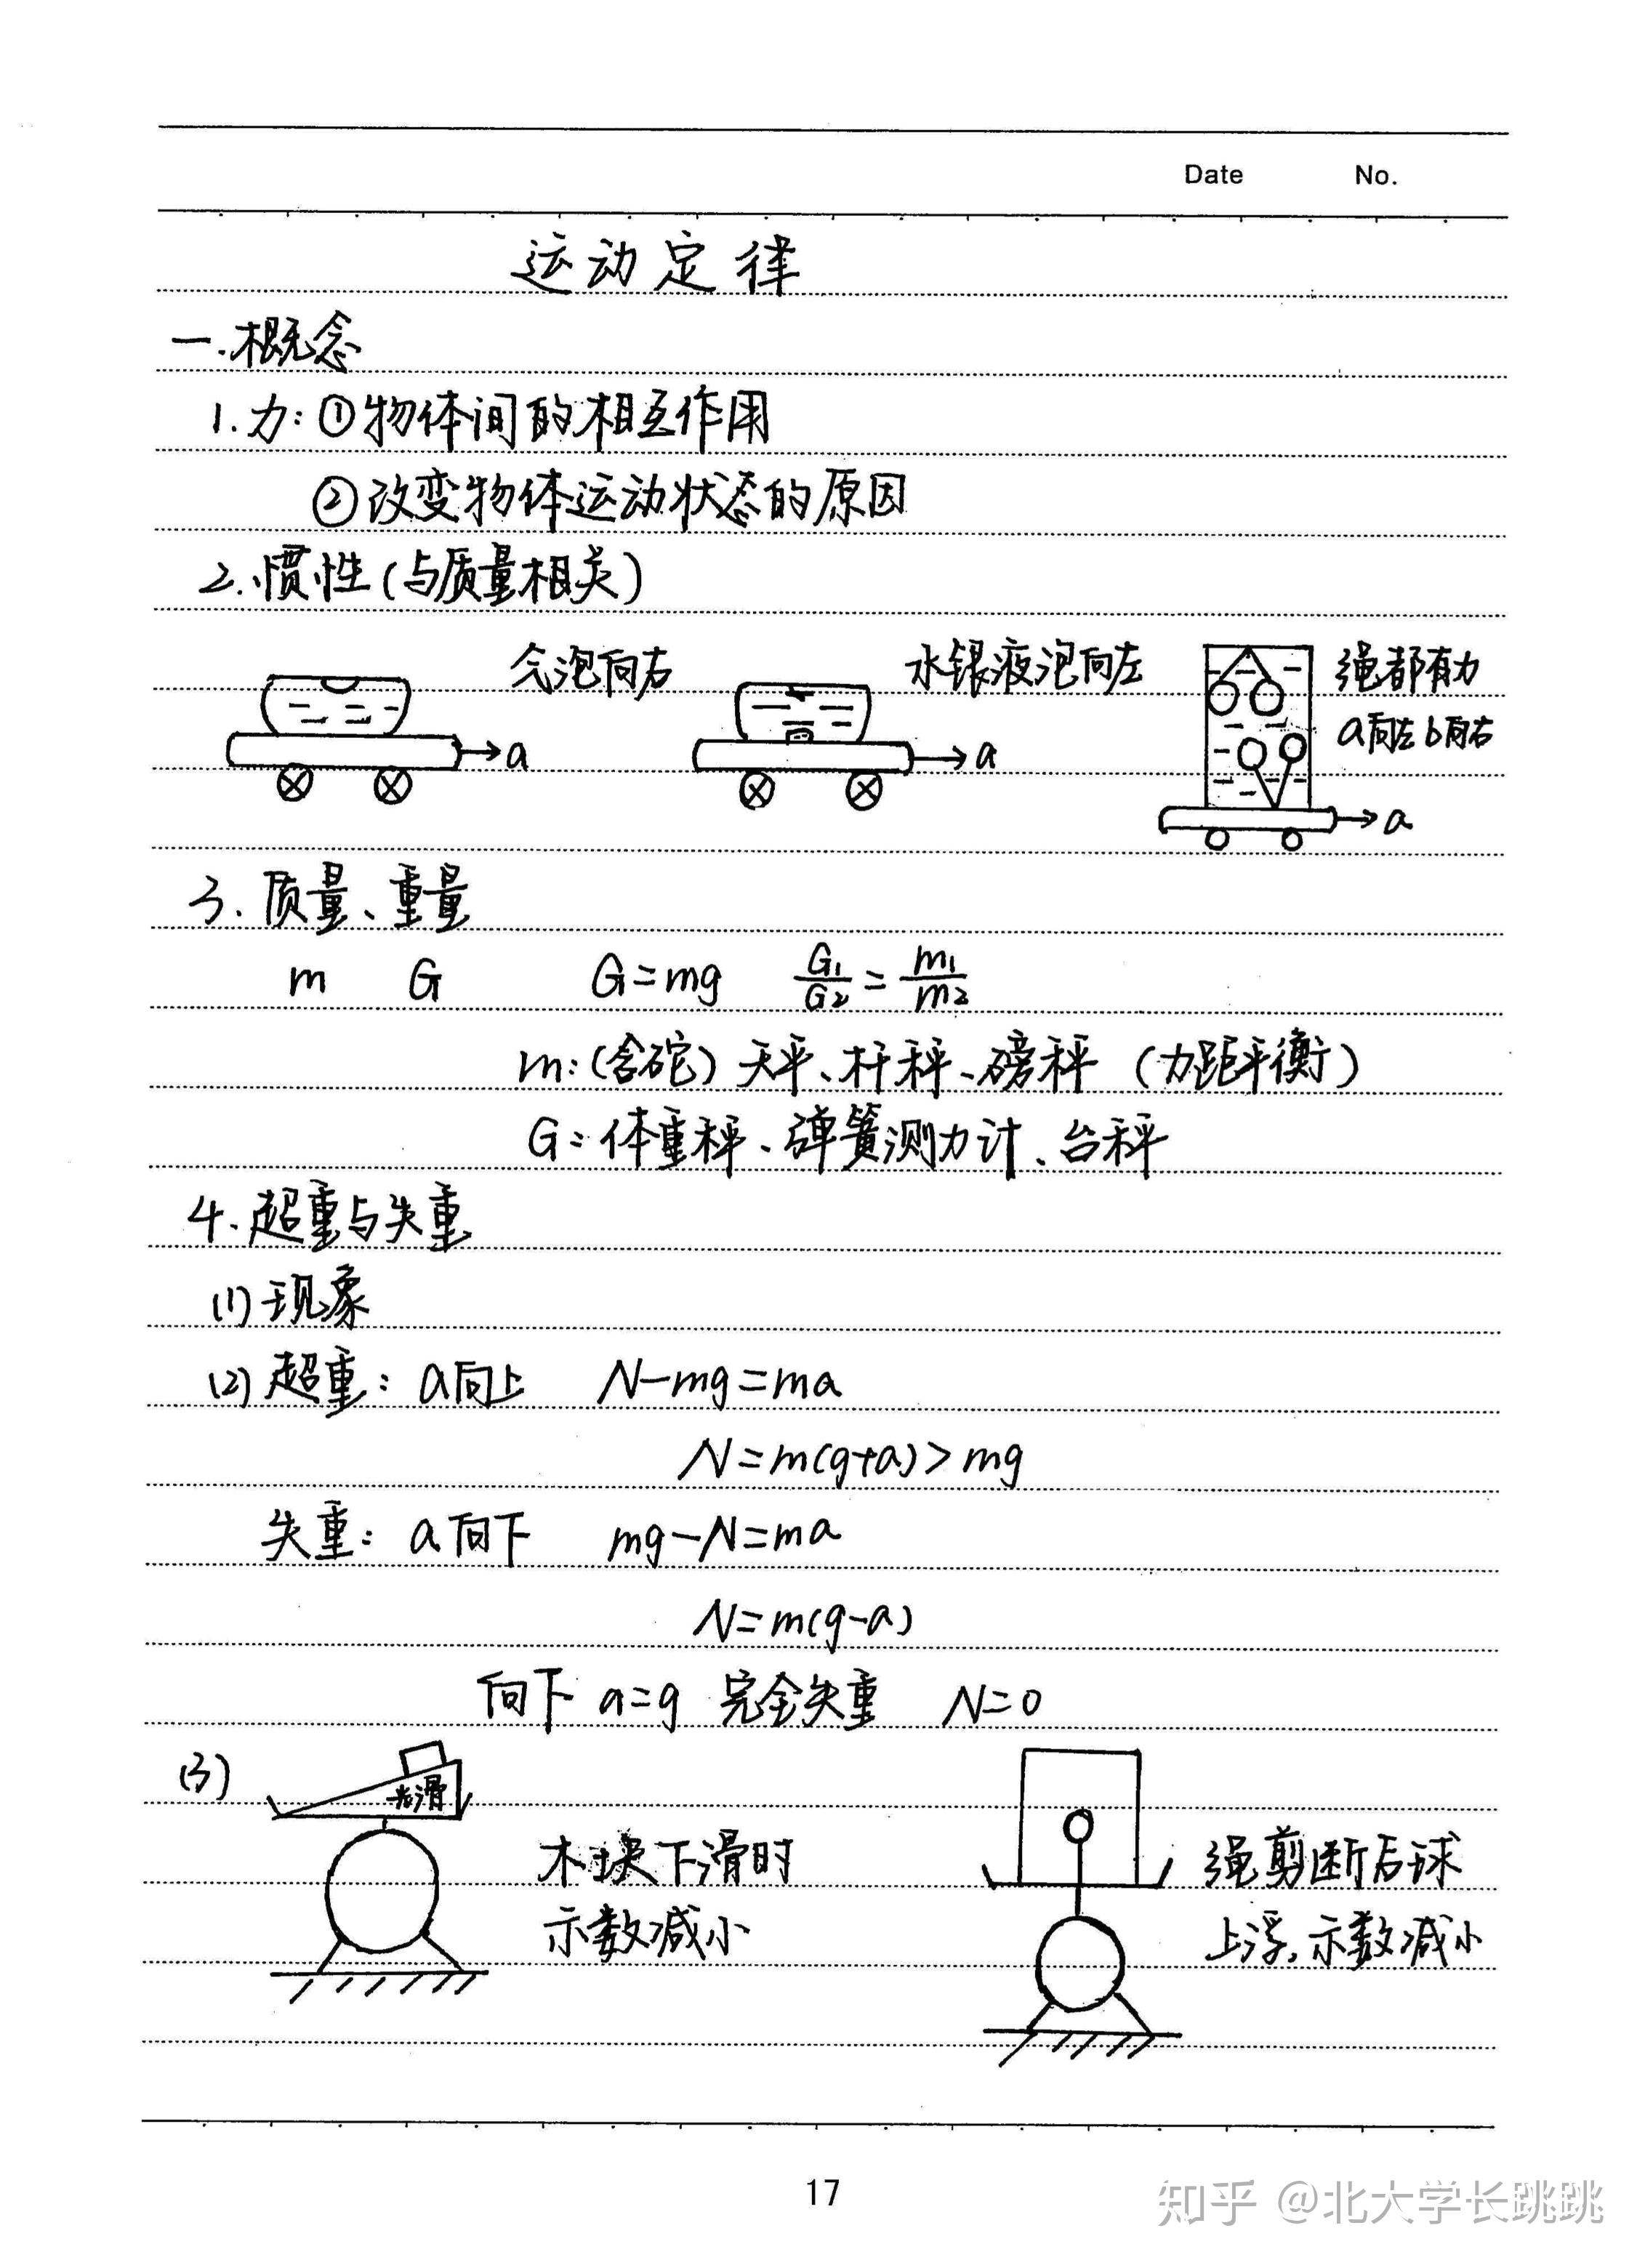 Date No.
运动定律
一.概念
1.力:①物体间的相互作用
②改变物体运动状态的原因
2.惯性(与质量相关)
气泡向右 水银液泡向左 绳都有力
a向左 b向右
a a a
3.质量、重量
m G G=mg G1/G2=m1/m2
m:(含砣)天平、杆秤、磅秤(力距平衡)
G:体重秤、弹簧测力计、台秤
4.超重与失重
(1)现象
(2)超重:a向上 N-mg=ma
N=m(g+a)>mg
失重:a向下 mg-N=ma
N=m(g-a)
向下 a=g 完全失重 N=0
(3)
光滑
木块下滑时 绳剪断后球
示数减小 上浮,示数减小
17
知乎 @北大学长跳跳